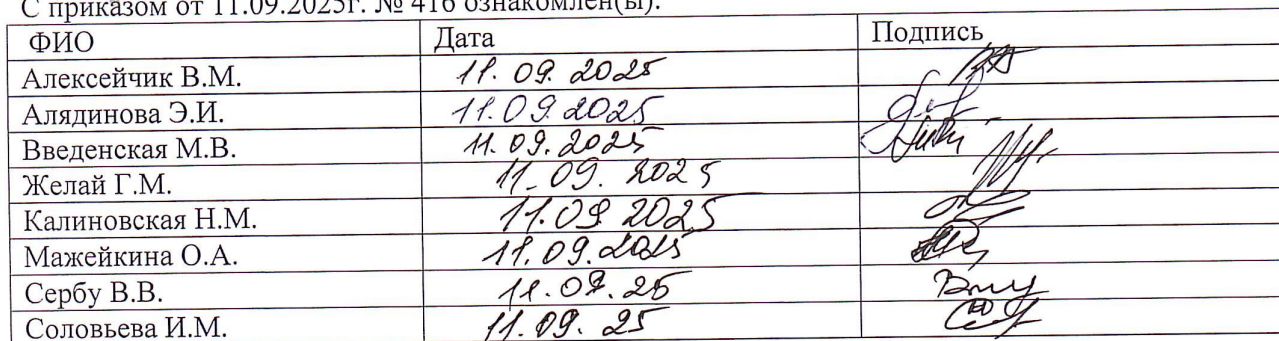 С приказом от 11.09.2025г. № 416 ознакомлен(ы):
ФИО Дата Подпись
Алексейчик В.М. 11.09.2025
Алядинова Э.И. 11.09.2025
Введенская М.В. 11.09.2025
Желай Г.М. 11.09.2025
Калиновская Н.М. 11.09.2025
Мажейкина О.А. 11.09.2025
Сербу В.В. 11.09.25
Соловьева И.М. 11.09.25